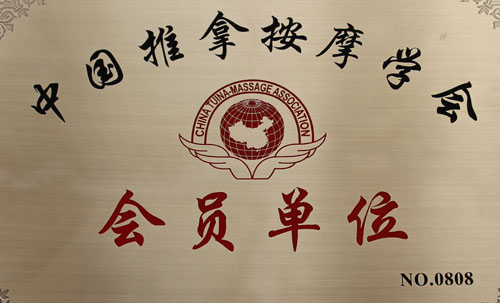 中国推拿按摩学会
CHINA TUINA-MASSAGE ASSOCIATION
会员单位
NO.0808